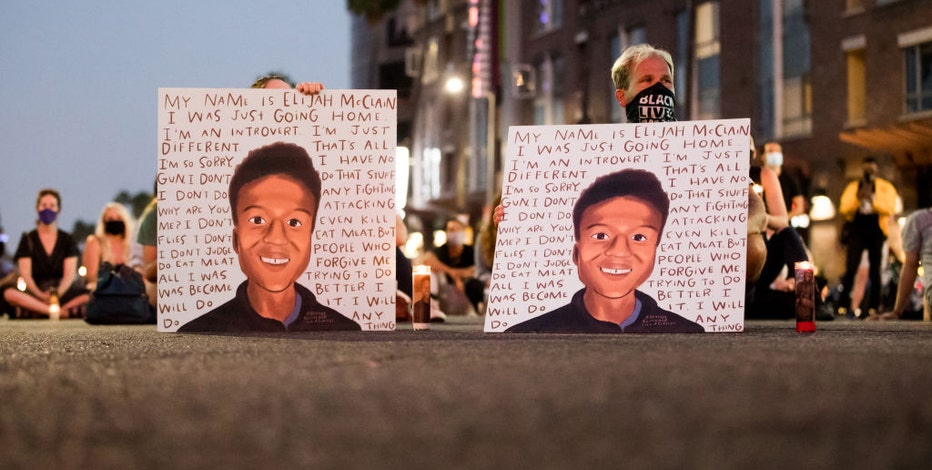 MY NAME IS ELIJAH McCLAIN
I WAS JUST GOING HOME.
I'M AN INTROVERT. I'M JUST
DIFFERENT. THAT'S ALL.
I'M SO SORRY. I HAVE NO
GUN. I DON'T DO THAT STUFF
I DON'T DO ANY FIGHTING
WHY ARE YOU ATTACKING
ME? I DON'T EVEN KILL
FLIES I DON'T EAT MEAT. BUT
I DON'T JUDGE PEOPLE WHO
DO EAT MEAT FORGIVE ME.
ALL I WAS TRYING TO DO
WAS BECOME BETTER I
WILL DO IT. I WILL
DO ANY THING
MY NAME IS ELIJAH McCLAIN
I WAS JUST GOING HOME.
I'M AN INTROVERT. I'M JUST
DIFFERENT THAT'S ALL.
I'M SO SORRY I HAVE NO
GUN. I DON'T DO THAT STUFF
I DON'T DO ANY FIGHTING
WHY ARE YOU ATTACKING
ME? I DON'T EVEN KILL
FLIES I DON'T EAT MEAT. BUT
I DON'T JUDGE PEOPLE WHO
DO EAT MEAT FORGIVE ME.
ALL I WAS TRYING TO DO
WAS BECOME BETTER I
WILL DO IT. I WILL
DO ANY THING
BLACK
LIVES